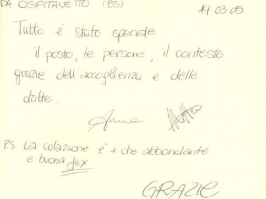 DA OSPITALETTO (BS) 19 03 05
Tutto è stato speciale
il posto, le persone, il contesto
grazie dell'accoglienza e delle
dritte.
Anna
P.S. La colazione è + che abbondante
e buona
GRAZIE